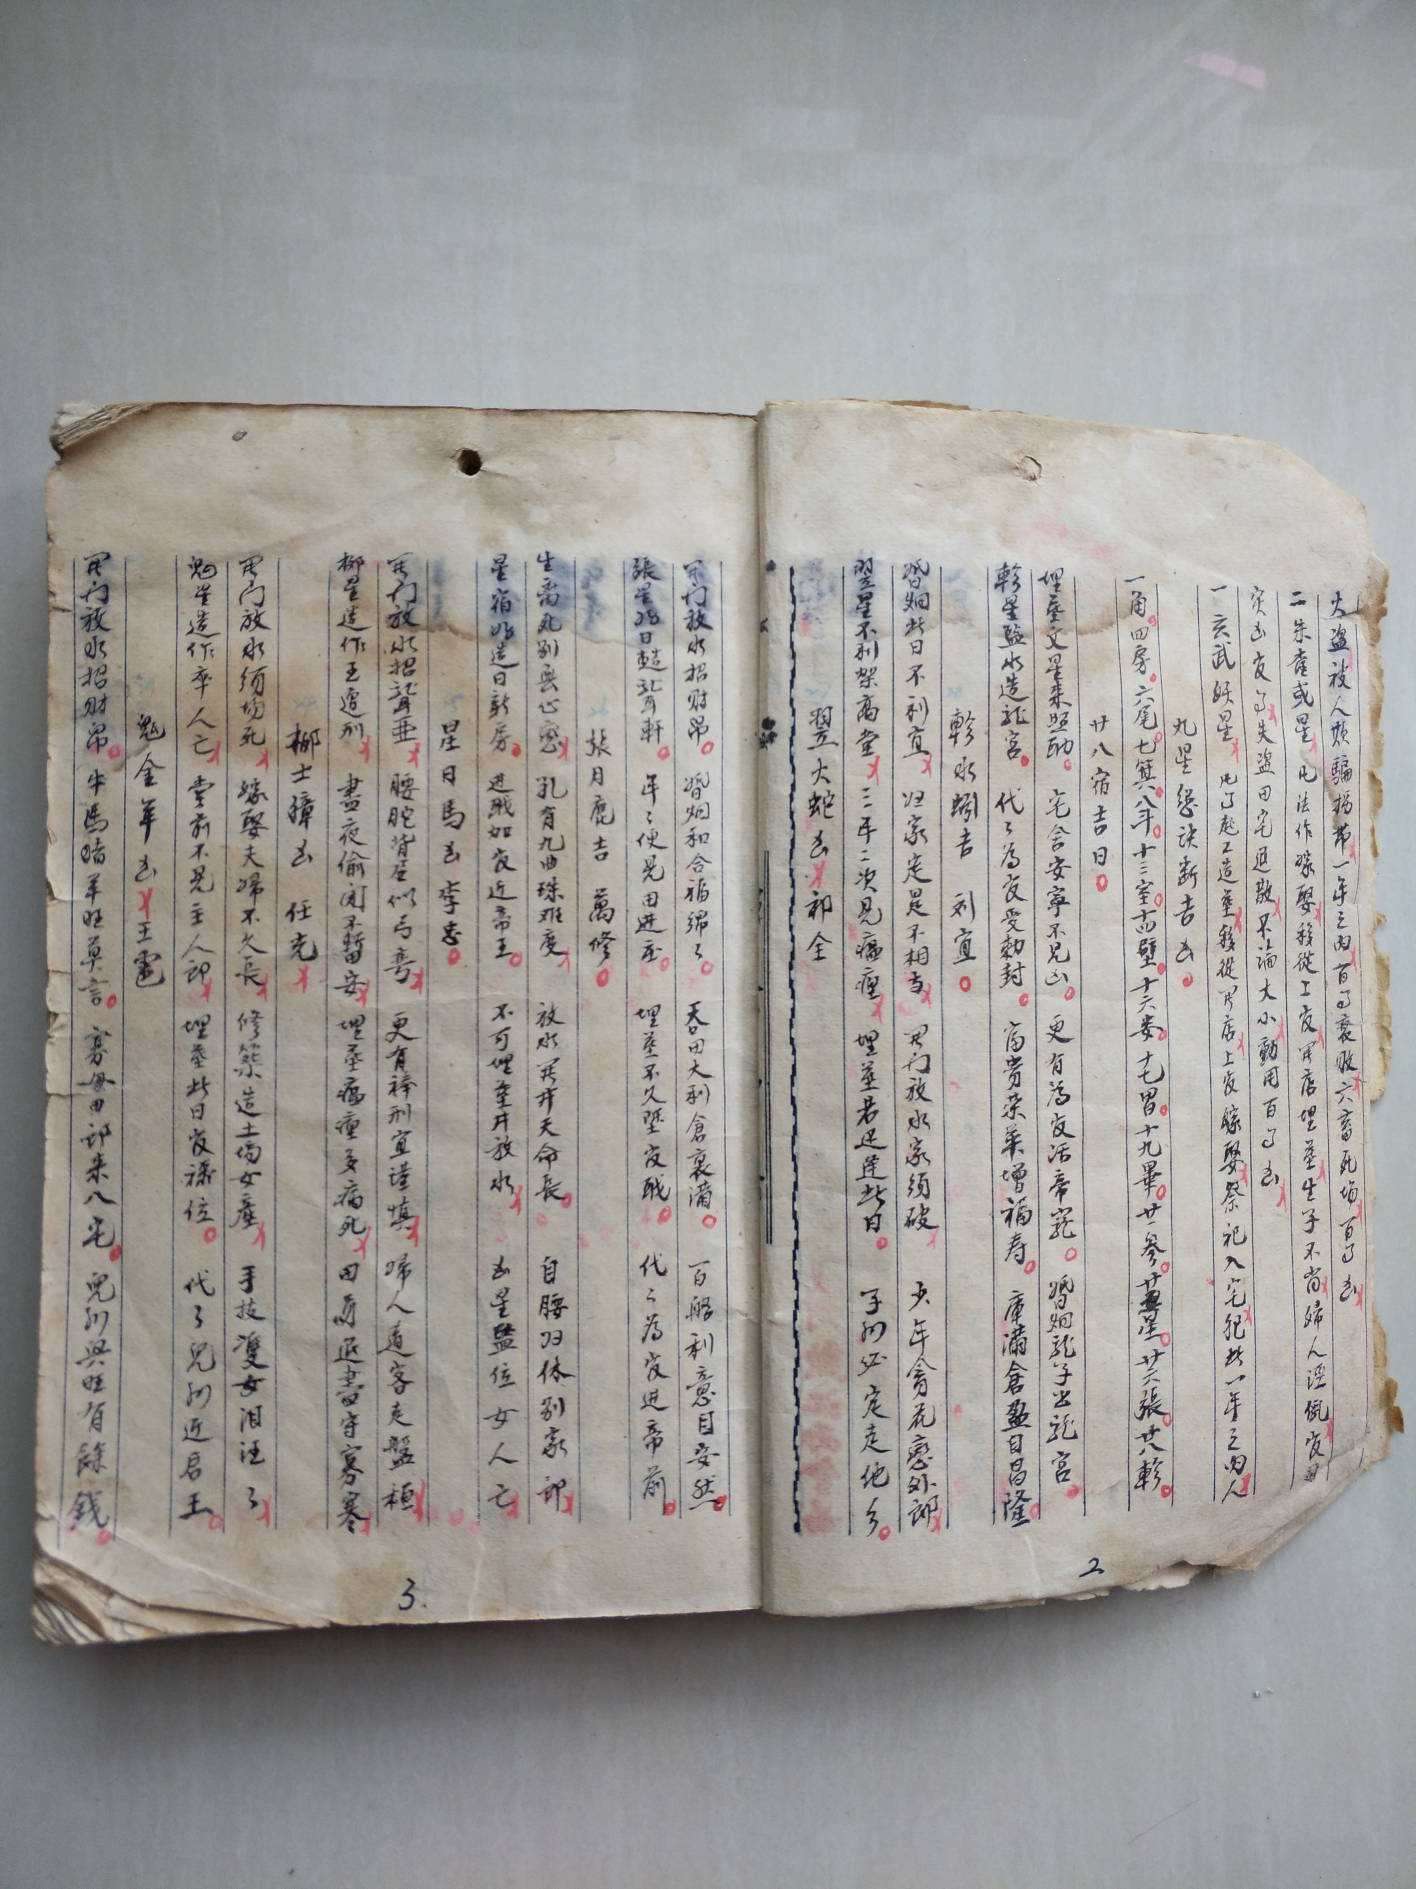 火盜被人欺騙拐帶一年之內百事衰敗六畜死傷百事凶
二朱雀或星凡法作嫁娶移從上官開店埋葬生子不肖婦人淫俬官
災凶官事失盜田宅退散不論大小動用百事凶
一玄武妖星凡事起工造葬移從開店上官嫁娶祭祀入宅犯此一年之內人
九星總訣斷吉凶
廿八宿吉日
一角四房六尾七箕八斗十三室十四壁十六婁十七胃十九畢廿一參廿五星廿六張廿八軫
埋葬文星來照助 宅舍安寧不見凶 更有為官沾帝寵 婚姻龍子出龍宮
軫星監水造龍宮 代々為官受勅封 富贵榮華增福寿 庫滿倉盈自昌隆
軫水蚓吉 刘直
婚姻此日不利宜 归家定是不相当 開门放水家須破 少年貪花戀外郎
翌星不利架高堂 三年二次見瘟瘟 埋葬若还逢此日 子孙必定走他乡
翌火蛇凶 邳全
開门放水招财帛 婚姻和合福綿々 蚕田大利倉裏滿 百般利意自安然
張星好日造龍軒 年々便見田进庄 埋葬不久陞官職 代々為官进帝前
張月鹿吉 萬修
生离死别無心戀 孔有九曲珠难度 放水開井天命長 自腰归休别家郎
星宿好造日新房 进职加官近帝王 不可埋葬并放水 凶星監位女人亡
星日馬凶 李忠
開门放水招聋亜 腰駝背屈似弓弯 更有棒刑宜谨慎 婦人道客走盤桓
柳星造作主遭刑 晝夜偷闲不暫安 埋葬瘟瘟多病死 田园退盡守寡寒
柳士獐凶 任光
開门放水须切死 嫁娶夫婦不久長 修築造土傷女產 手技雙女泪汪々
鬼星造作卒人亡 堂前不見主人郎 埋葬此日官禄位 代々兒孙近君王
鬼金羊凶 王霸
開门放水招财帛 牛馬猪羊旺莫言 寡母田郎来入宅 兒孙興旺有餘錢
2
3.